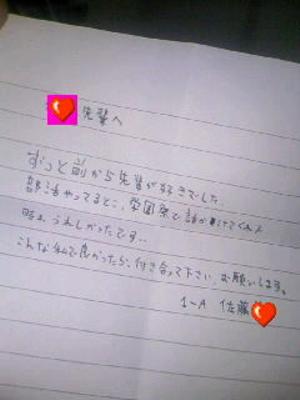 先輩へ
ずっと前から先輩が好きでした
部活やってるとこ、学園祭で話かけてくれた
時、うれしかったです..
こんな私で良かったら、付き合って下さい。お願いします。
1-A 佐藤